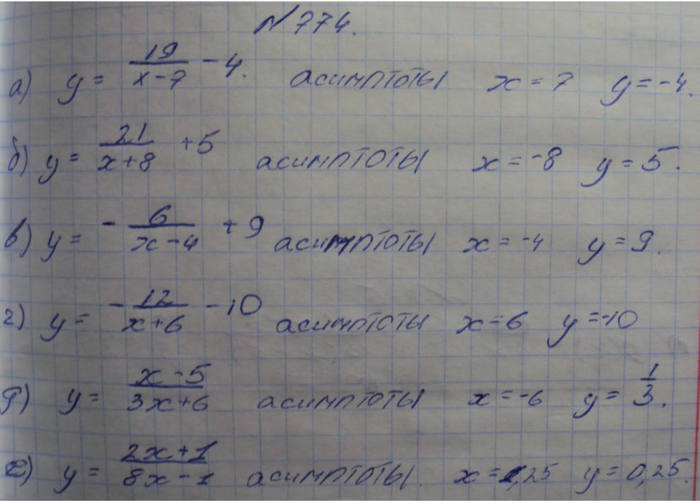 №774.
а) y = 19/(x-7) - 4. асимптоты x = 7 y = -4.
б) y = 21/(x+8) + 5 асимптоты x = -8 y = 5.
в) y = - 6/(x-4) + 9 асимптоты x = -4 y = 9.
г) y = - 12/(x+6) - 10 асимптоты x = 6 y = -10
д) y = (x-5)/(3x+6) асимптоты x = -6 y = 1/3.
е) y = (2x+1)/(8x-1) асимптоты. x = 1,25 y = 0,25.